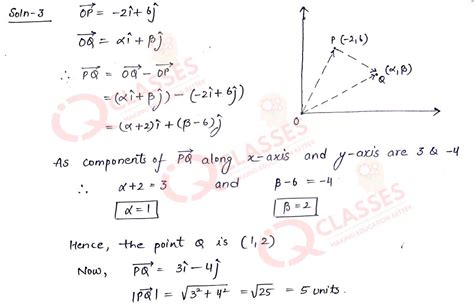 Soln-3 $\overrightarrow{OP} = -2\hat{i} + 6\hat{j}$
$\overrightarrow{OQ} = \alpha\hat{i} + \beta\hat{j}$
$\therefore \overrightarrow{PQ} = \overrightarrow{OQ} - \overrightarrow{OP}$
$= (\alpha\hat{i} + \beta\hat{j}) - (-2\hat{i} + 6\hat{j})$
$= (\alpha+2)\hat{i} + (\beta-6)\hat{j}$
P (-2,6)
(α,β)
Q
O
As components of $\overrightarrow{PQ}$ along x-axis and y-axis are 3 & -4
∴ α+2 = 3 and β-6 = -4
α=1 β=2
Hence, the point Q is (1,2)
Now, $\overrightarrow{PQ} = 3\hat{i} - 4\hat{j}$
$|\overrightarrow{PQ}| = \sqrt{3^2+4^2} = \sqrt{25} = 5$ units.
CLASSES
CLASSES
CLASSES
MAKING EDUCATION BETTER